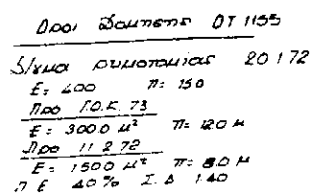 Όροι Δομησης ΟΤ 1155
Σ/γμα ρυμοτομιας 20 1 72
Ε= 400 Π= 150
Προ Γ.Ο.Κ. 73
Ε= 3000 μ² Π= 120 μ
Προ 11 2 72
Ε= 1500 μ² Π= 80 μ
Π Ε 40% Σ. Δ 1.40